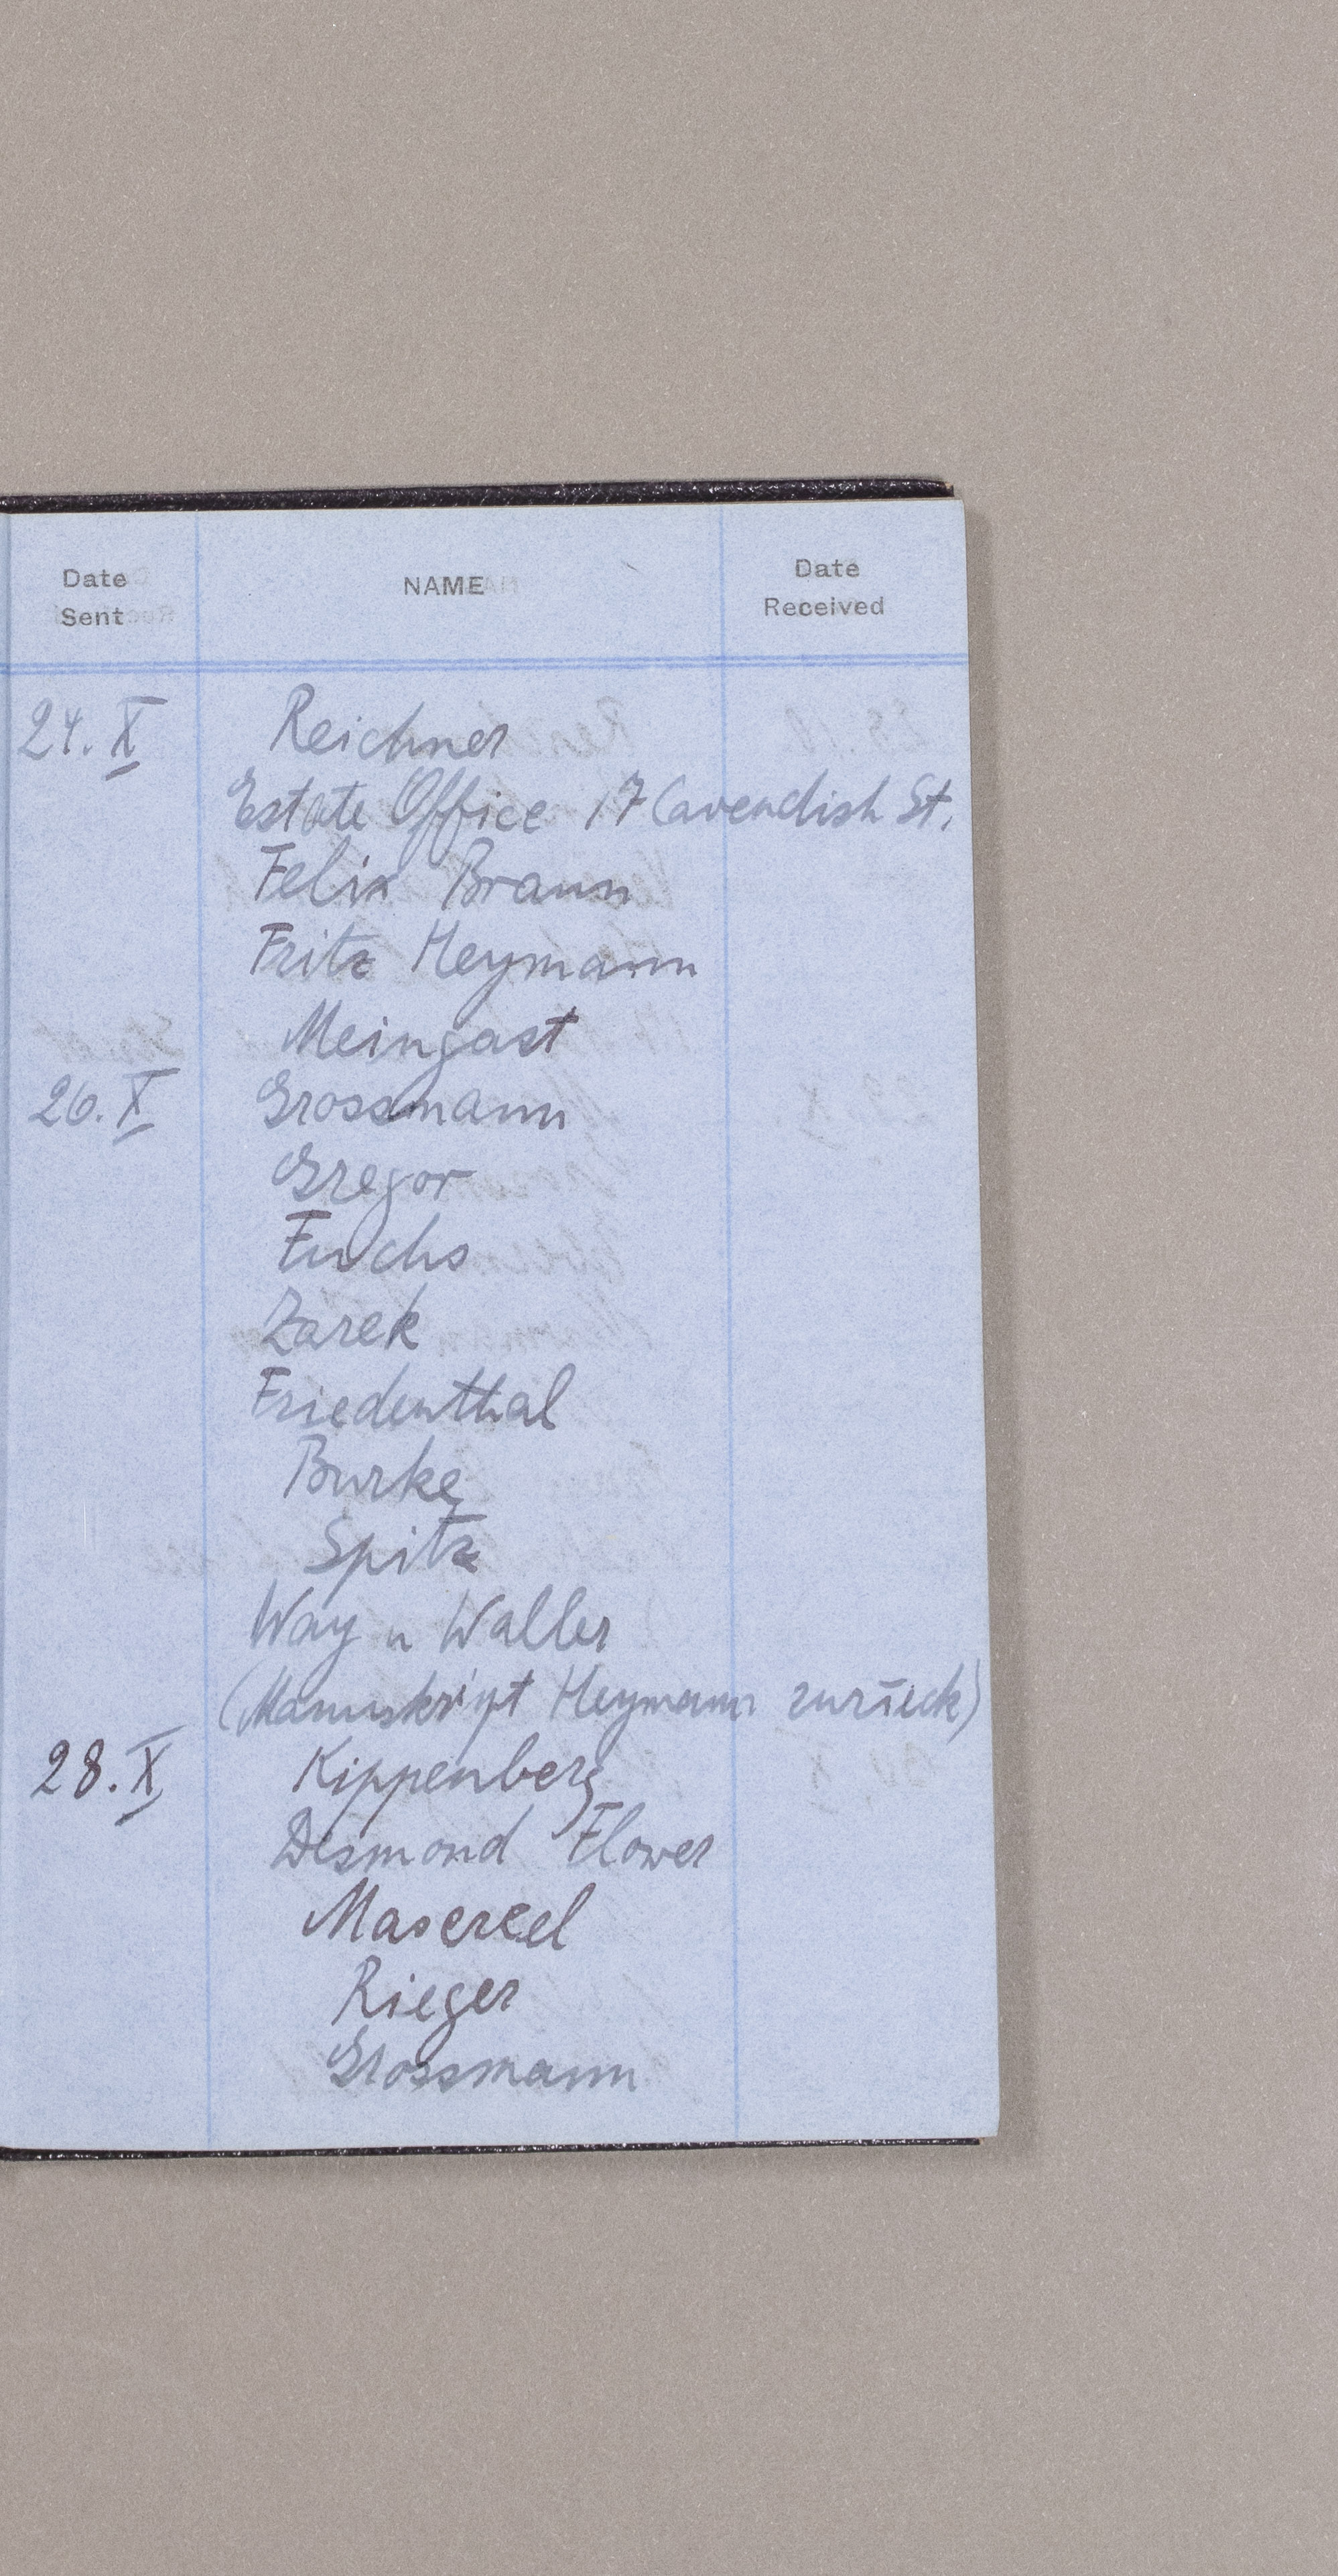 Date Sent NAME Date Received
24. X Reichner
Estate Office 17 Cavendish St.
Felix Braun
Fritz Heymann
Meingast
26. X Grossmann
Gregor
Fuchs
Zarek
Friedenthal
Burke
Spitz
Way u Waller
(Manuskript Heymann zurück)
28. X Kippenberg
Desmond Flower
Masereel
Rieger
Grossmann